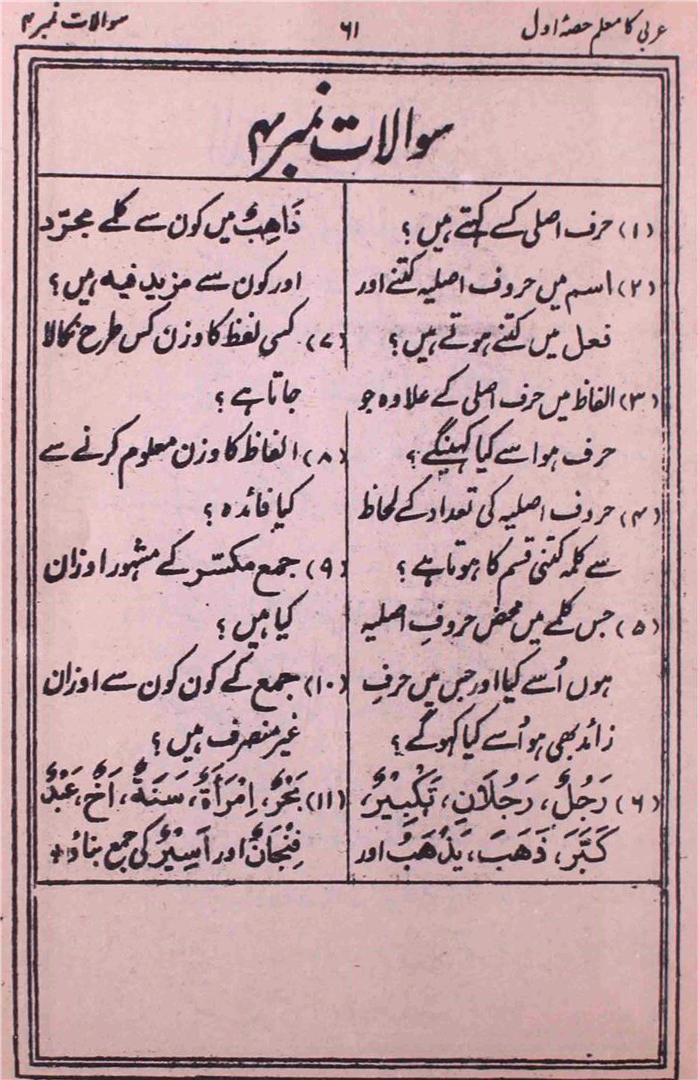 عربی کا معلم حصۂ اول
۶۱
سوالات نمبر ۴
سوالات نمبر ۴
(۱) حرف اصلی کسے کہتے ہیں؟
(۲) اسم میں حروف اصلیہ کتنے اور
فعل میں کتنے ہوتے ہیں؟
(۳) الفاظ میں حرف اصلی کے علاوہ جو
حرف ہو اسے کیا کہینگے؟
(۴) حروف اصلیہ کی تعداد کے لحاظ
سے کلمہ کتنی قسم کا ہوتا ہے؟
(۵) جس کلمے میں محض حروفِ اصلیہ
ہوں اُسے کیا اور جس میں حرفِ
زائد بھی ہو اُسے کیا کہو گے؟
(۶) رَجُلٌ، رَجُلَانِ، تَكْبِيْرٌ،
كَبَّرَ، ذَهَبَ، يَذْهَبُ اور
ذَاهِبٌ میں کون سے کلمے مجرّد
اور کون سے مزید فیہ ہیں؟
(۷) کسی لفظ کا وزن کس طرح نکالا
جاتا ہے؟
(۸) الفاظ کا وزن معلوم کرنے سے
کیا فائدہ؟
(۹) جمع مکسّر کے مشہور اوزان
کیا ہیں؟
(۱۰) جمع کے کون کون سے اوزان
غیر منصرف ہیں؟
(۱۱) بَحْرٌ، اِمْرَأَةٌ، سَنَةٌ، اَخٌ، عَبْدٌ
فِنْجَانٌ اور اَسِيْرٌ کی جمع بناؤ+